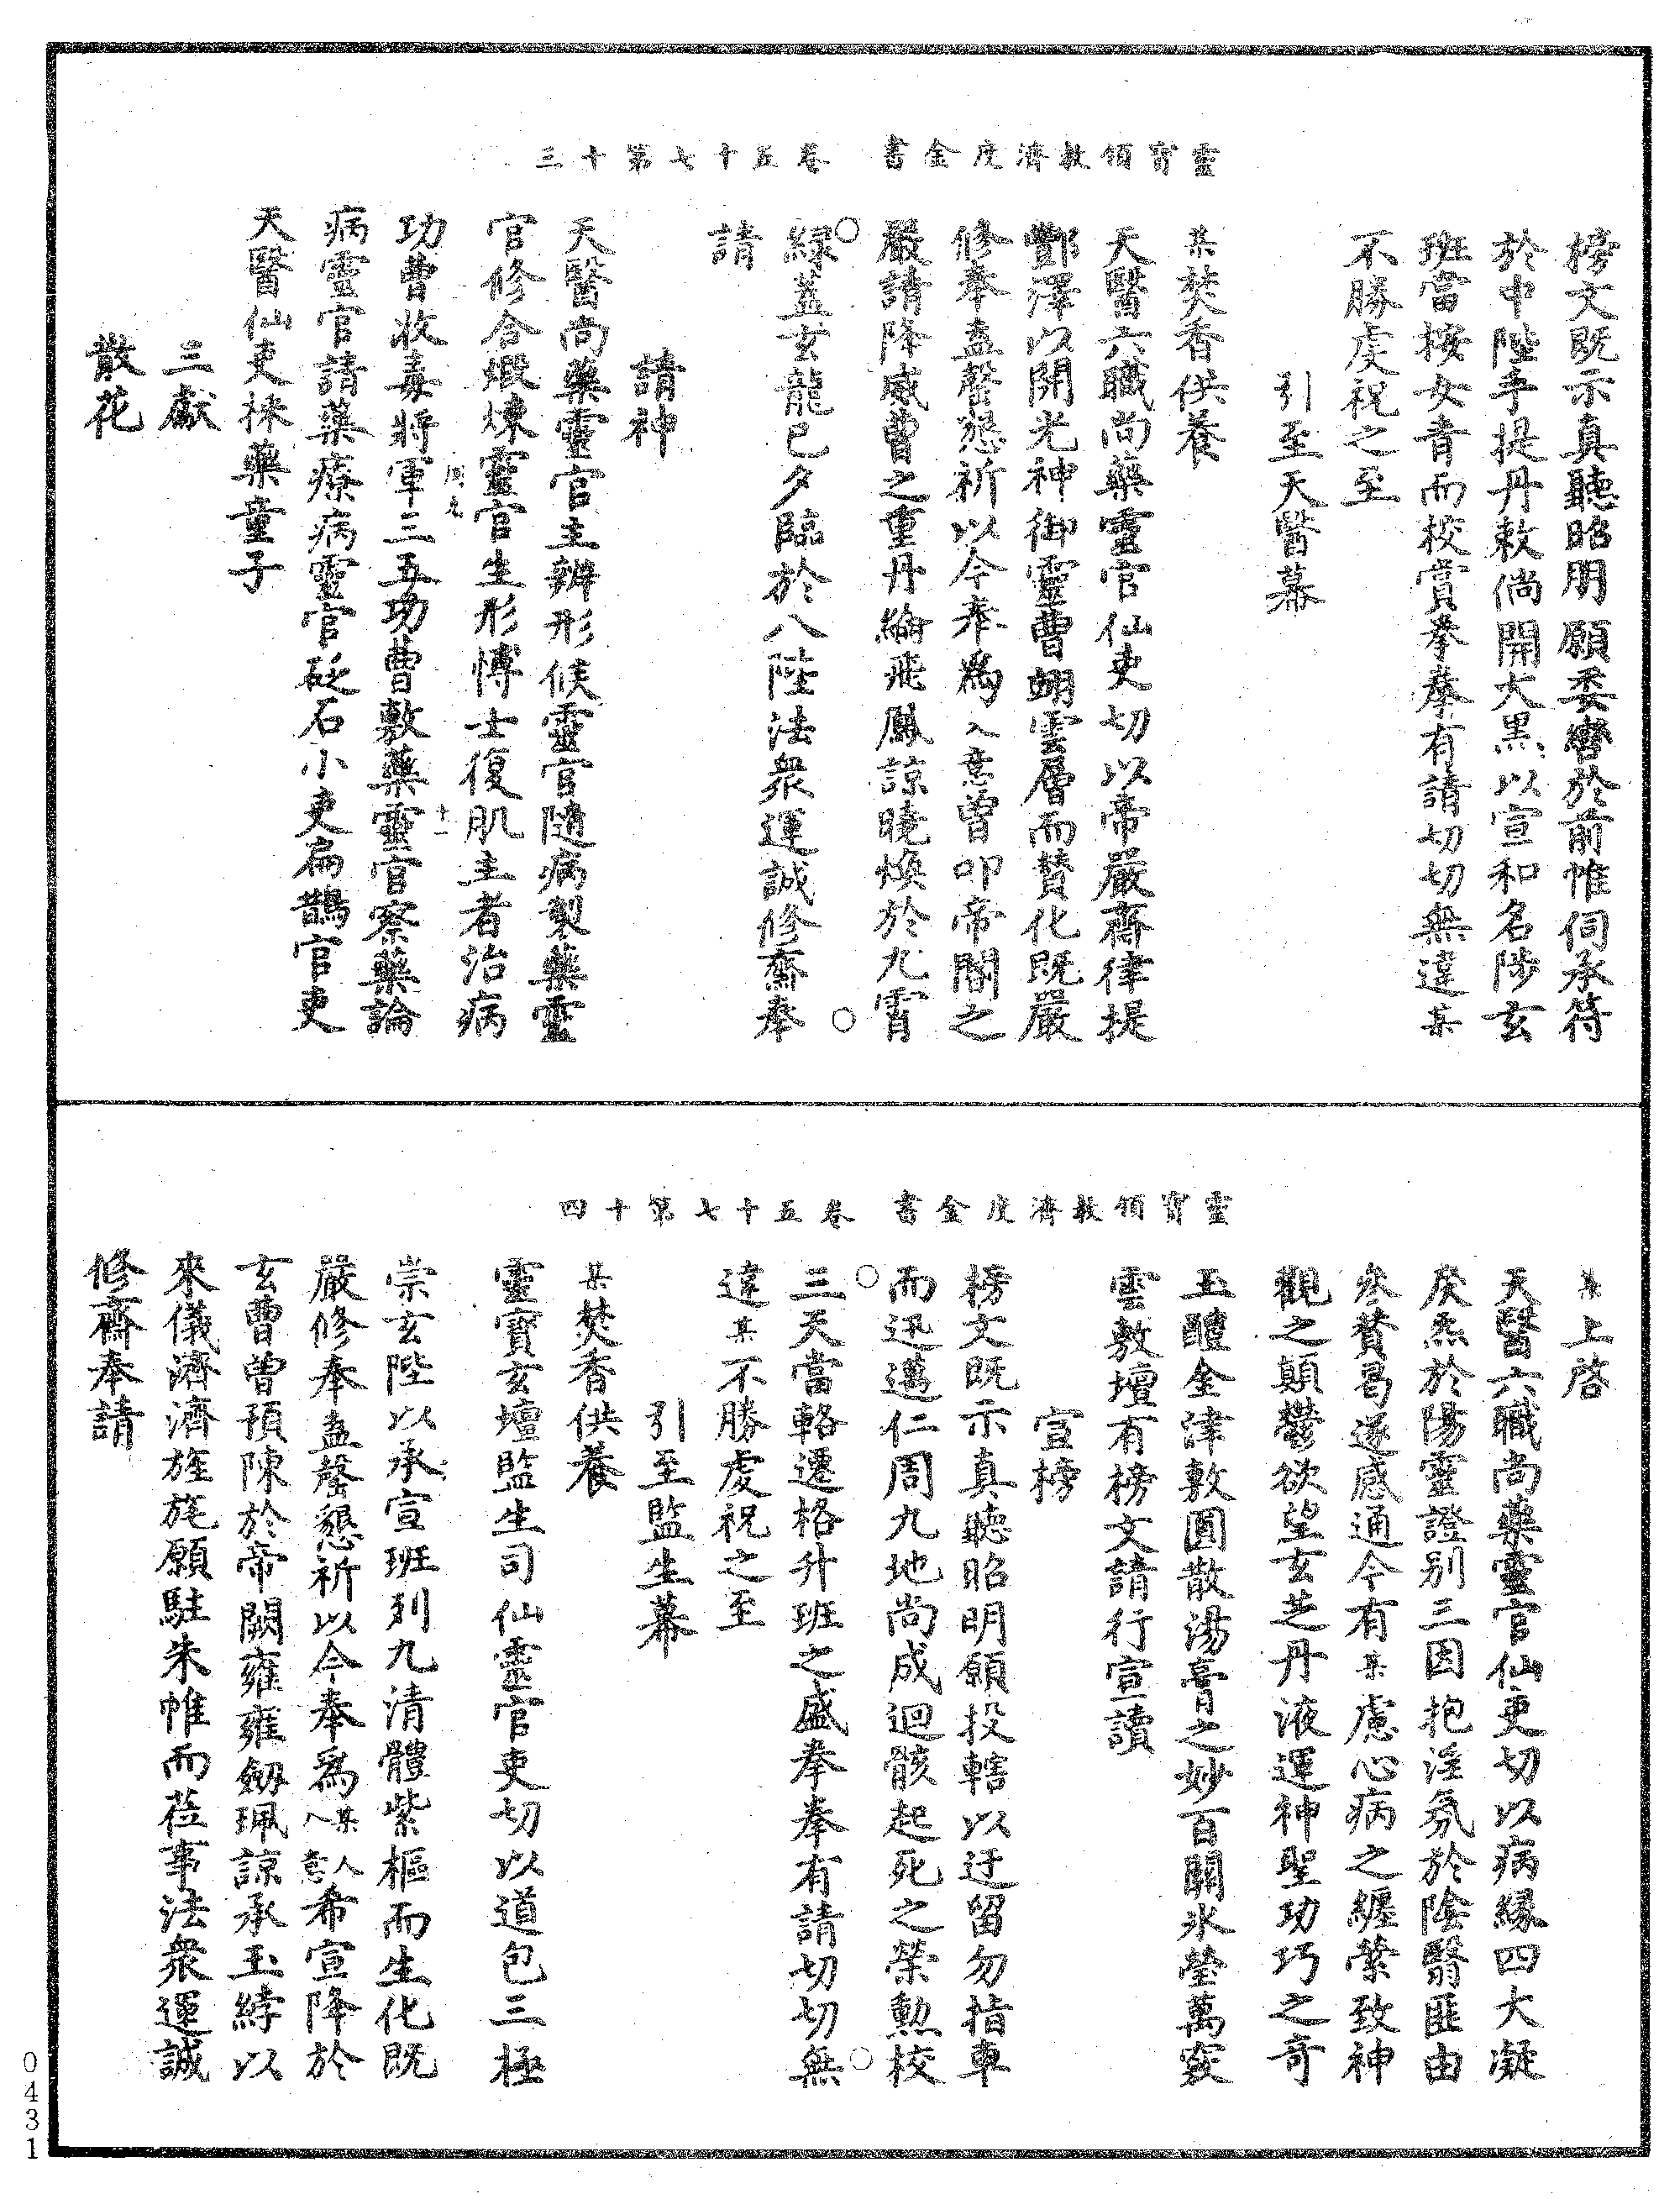 靈寶領教濟度金書 卷五十七第十三
榜文既示真聽昭明願委轡於前帷伺承符
於中陛手提丹敕倘開大黑以宣和名陟玄
班當按女青而校賞拳拳有請切切無違某
不勝虔祝之至
引至天醫幕
某焚香供養
天醫六職尚藥靈官仙吏切以帝嚴齋律提
酆澤以開光神御靈曹翊雲層而賛化既嚴
修奉盍罄懇祈以今奉爲入意曾叩帝閽之
嚴請降感曹之重丹綸飛鳳諒曉煥於九霄
緑蓋玄龍已夕臨於八陛法衆運誠修齋奉
請
請神
天醫尚藥靈官主辨形候靈官隨病製藥靈
官修合煆煉靈官生形博士復肌主者治病
功曹收毒將軍三五功曹敷藥靈官察藥論
病靈官請藥療病靈官砭石小吏扁鵲官吏
天醫仙吏採藥童子
三獻
散花
靈寶領教濟度金書 卷五十七第十四
某上啓
天醫六職尚藥靈官仙吏切以病緣四大凝
戾炁於陽靈證别三因抱淫氛於陰翳匪由
參賛曷遂感通今有某慮心病之纏縈致神
觀之顛鬱欲望玄芝丹液運神聖功巧之奇
玉醴金津敷圓散湯膏之妙百關氷瑩萬竅
雲敷壇有榜文請行宣讀
宣榜
榜文既示真聽昭明願投轄以迂留勿指車
而迅邁仁周九地尚成迴骸起死之榮勲校
三天當輅遷格升班之盛拳拳有請切切無
違某不勝虔祝之至
引至監生幕
某焚香供養
靈寶玄壇監生司仙靈官吏切以道包三極
崇玄陛以承宣班列九清體紫樞而生化既
嚴修奉盍罄懇祈以今奉爲某人入意希宣降於
玄曹曾預陳於帝闕雍雍劒珮諒承玉綍以
來儀濟濟旌旄願駐朱帷而莅事法衆運誠
修齋奉請
0431